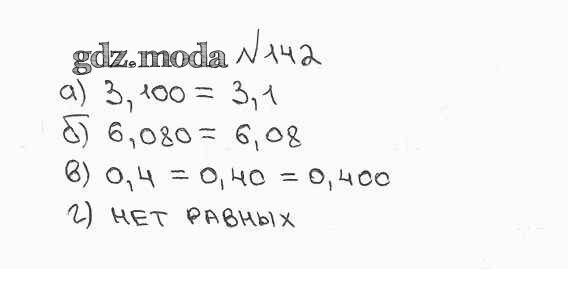 gdz.moda №142
а) 3,100 = 3,1
б) 6,080 = 6,08
в) 0,4 = 0,40 = 0,400
г) НЕТ РАВНЫХ